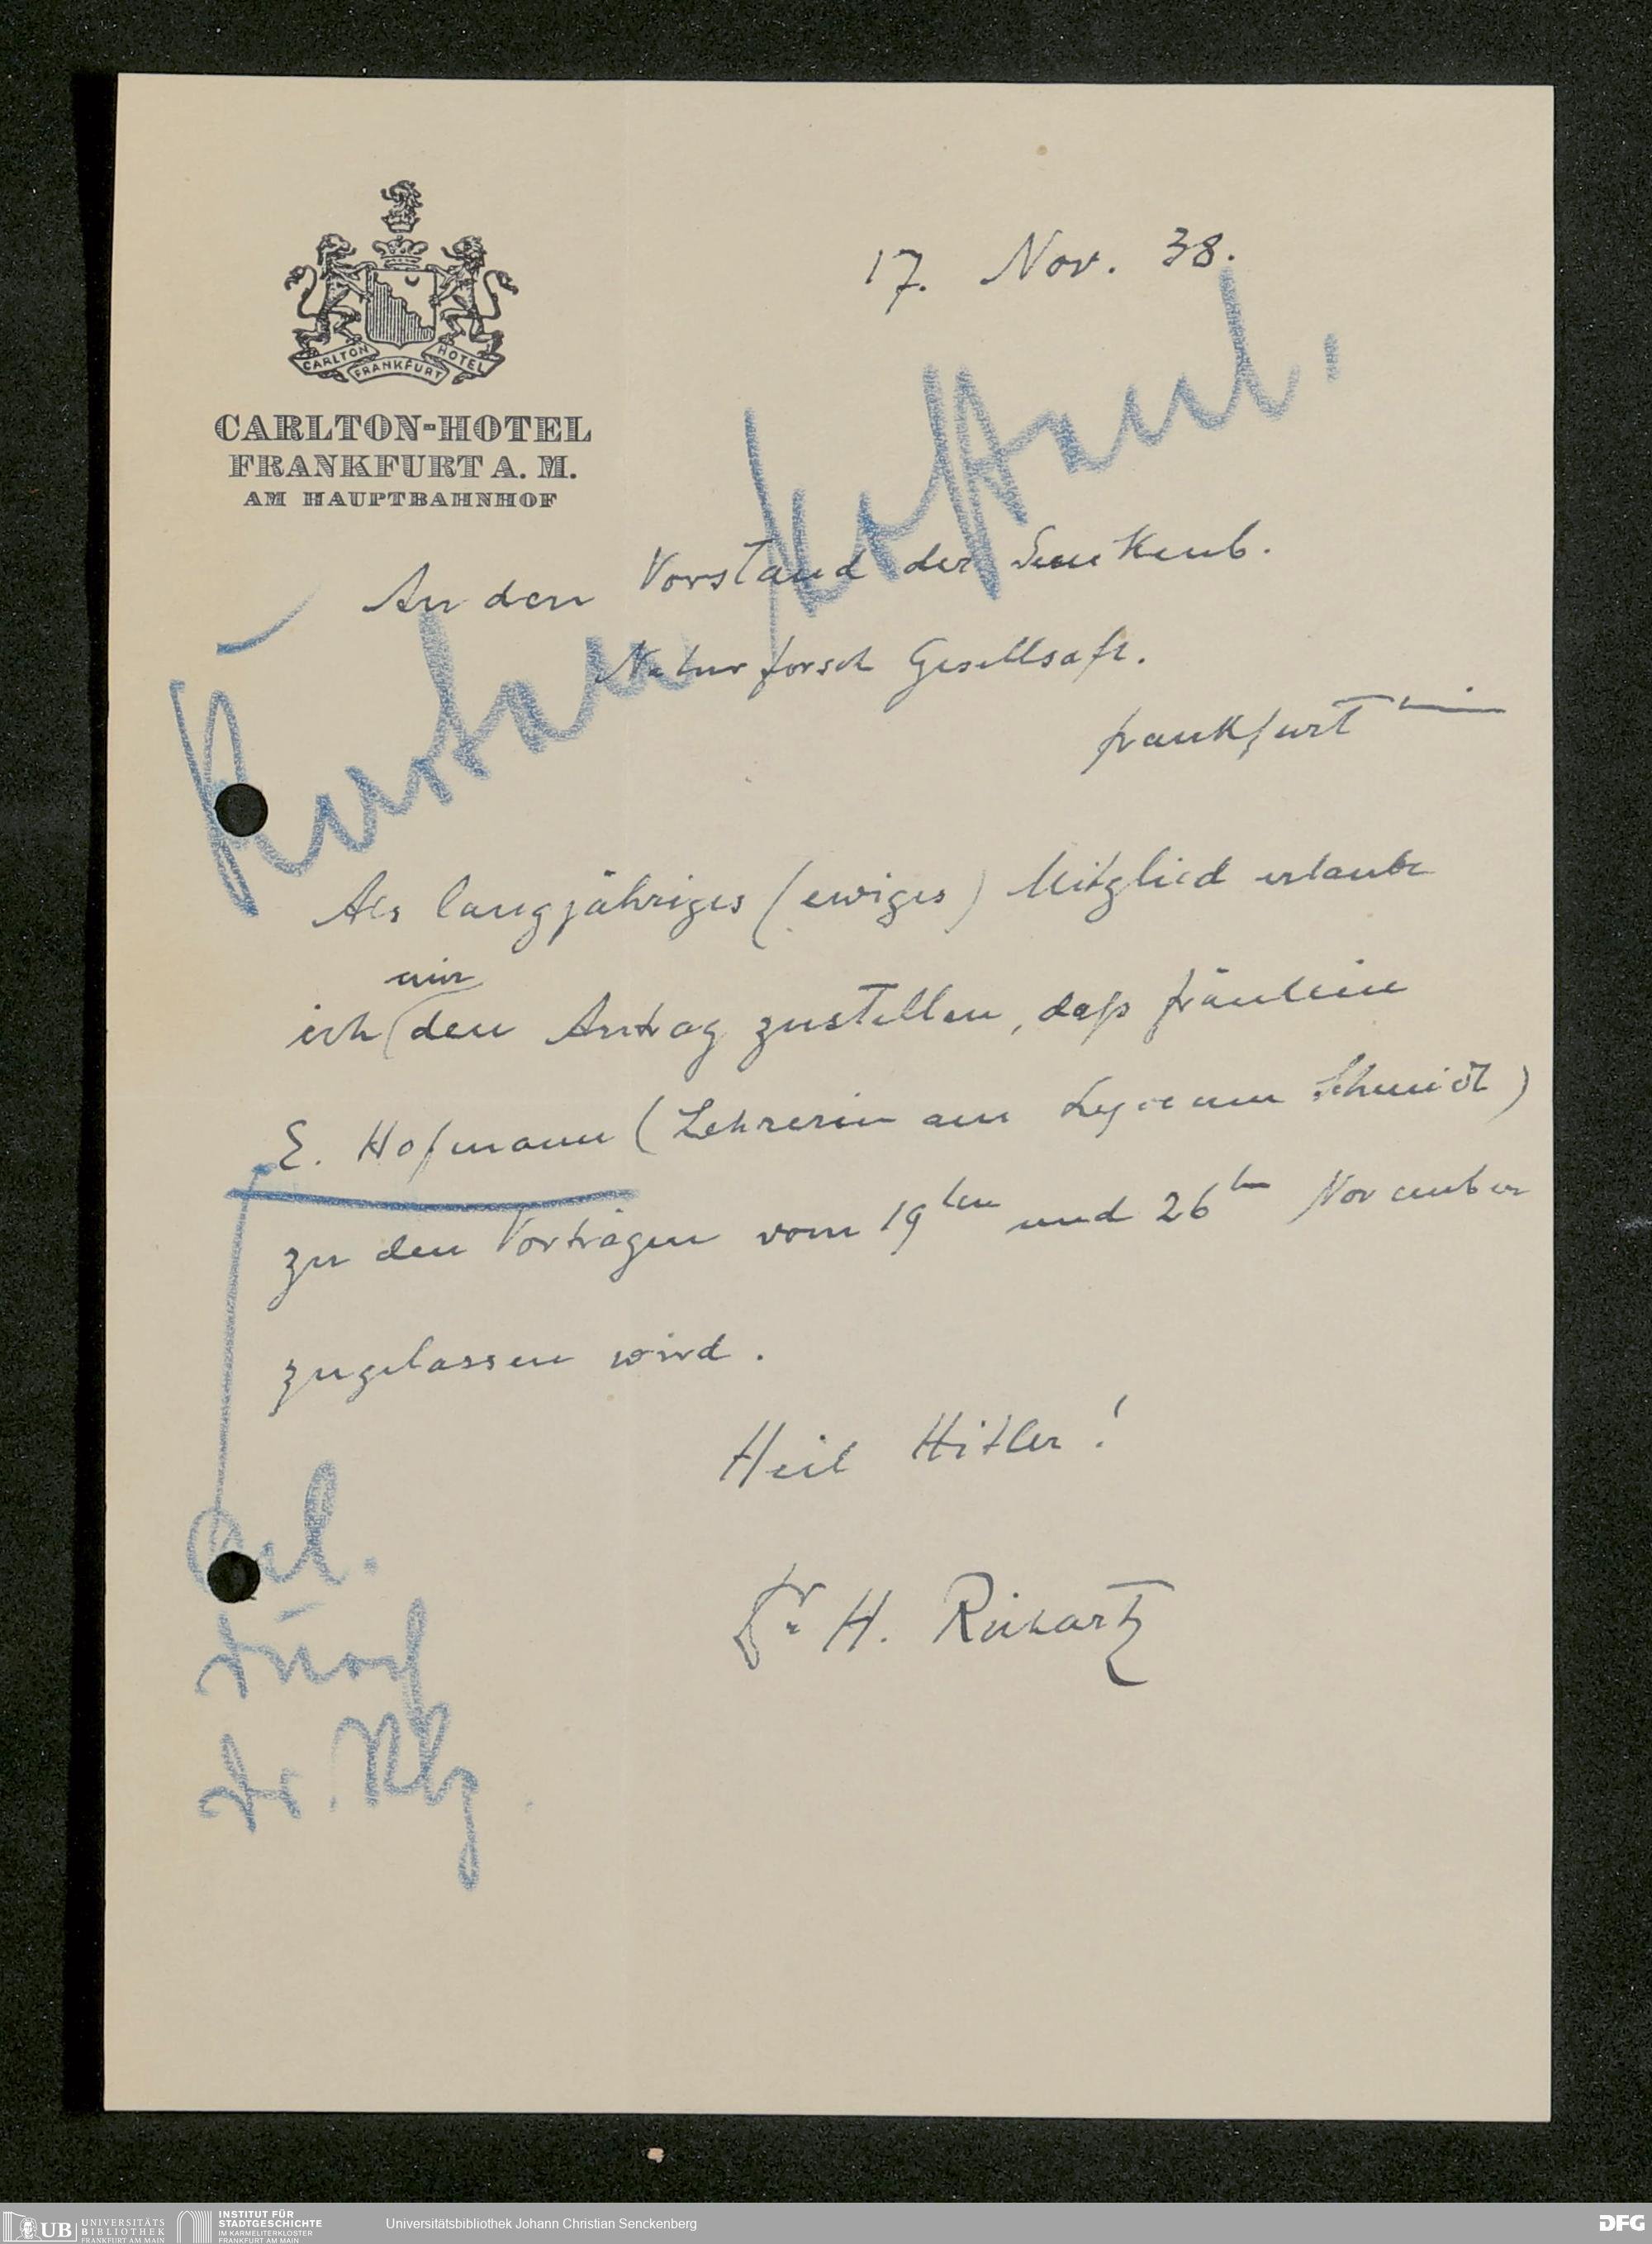 CARLTON HOTEL
FRANKFURT
CARLTON-HOTEL
FRANKFURT A. M.
AM HAUPTBAHNHOF
17. Nov. 38.
An den Vorstand der Senkenb.
Naturforsch Gesellsaft.
Frankfurt
Als langjähriges (ewiges) Mitglied erlaube
mir
ich den Antrag zustellen, daß Fräulein
E. Hofmann (Lehrerin am Lyceum Schmidt)
zu den Vorträgen vom 19ten und 26ten November
zugelassen wird.
Heil Hitler!
Dr H.
durch
Dr.
UB UNIVERSITÄTS
BIBLIOTHEK
FRANKFURT AM MAIN
INSTITUT FÜR
STADTGESCHICHTE
IM KARMELITERKLOSTER
FRANKFURT AM MAIN
Universitätsbibliothek Johann Christian Senckenberg
DFG